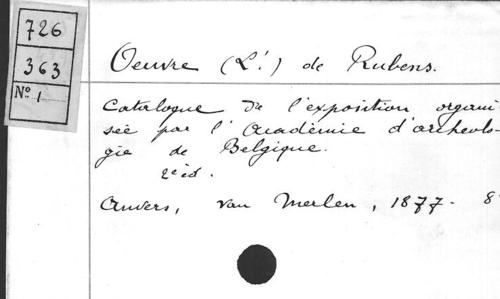 726
363
No 1
Oeuvre (L'.) de Rubens.
Catalogue de l'exposition organi
sée par l'Académie d'archéolo-
gie de Belgique.
2e éd.
Anvers, van Merlen, 1877. 8